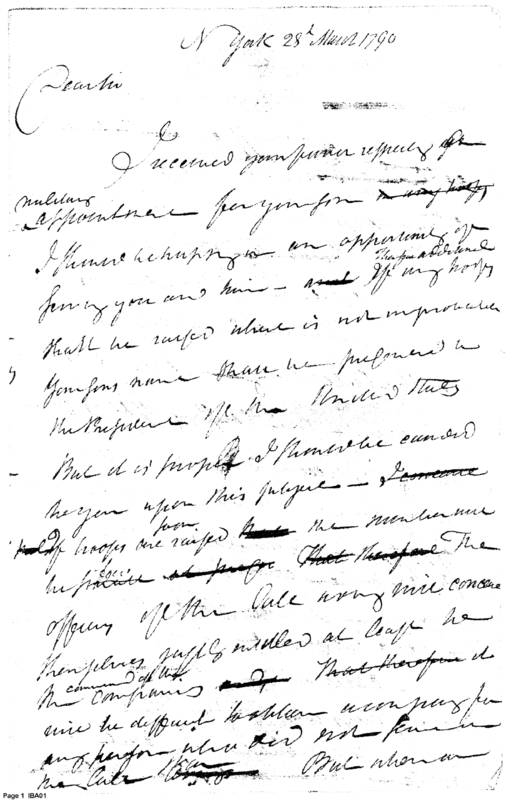 N York 28th March 1790
Dear Sir
I received your favor respecting a
military
appointment for your son in any troops
I should be happy in an opportunity of
serving you and him – and If any troops
shall be raised which is not improbable
Your sons name shall be presented to
the President of the United States
But it is proper I should be candid
to you upon this subject – I
If troops are raised the number will
soon
be The
officers of the late army will conceive
themselves justly entitled at least to
command of the
the companies and That therefore it
will be difficult to obtain a company for
any person who did not serve in
the late But when
Page 1 IBA01